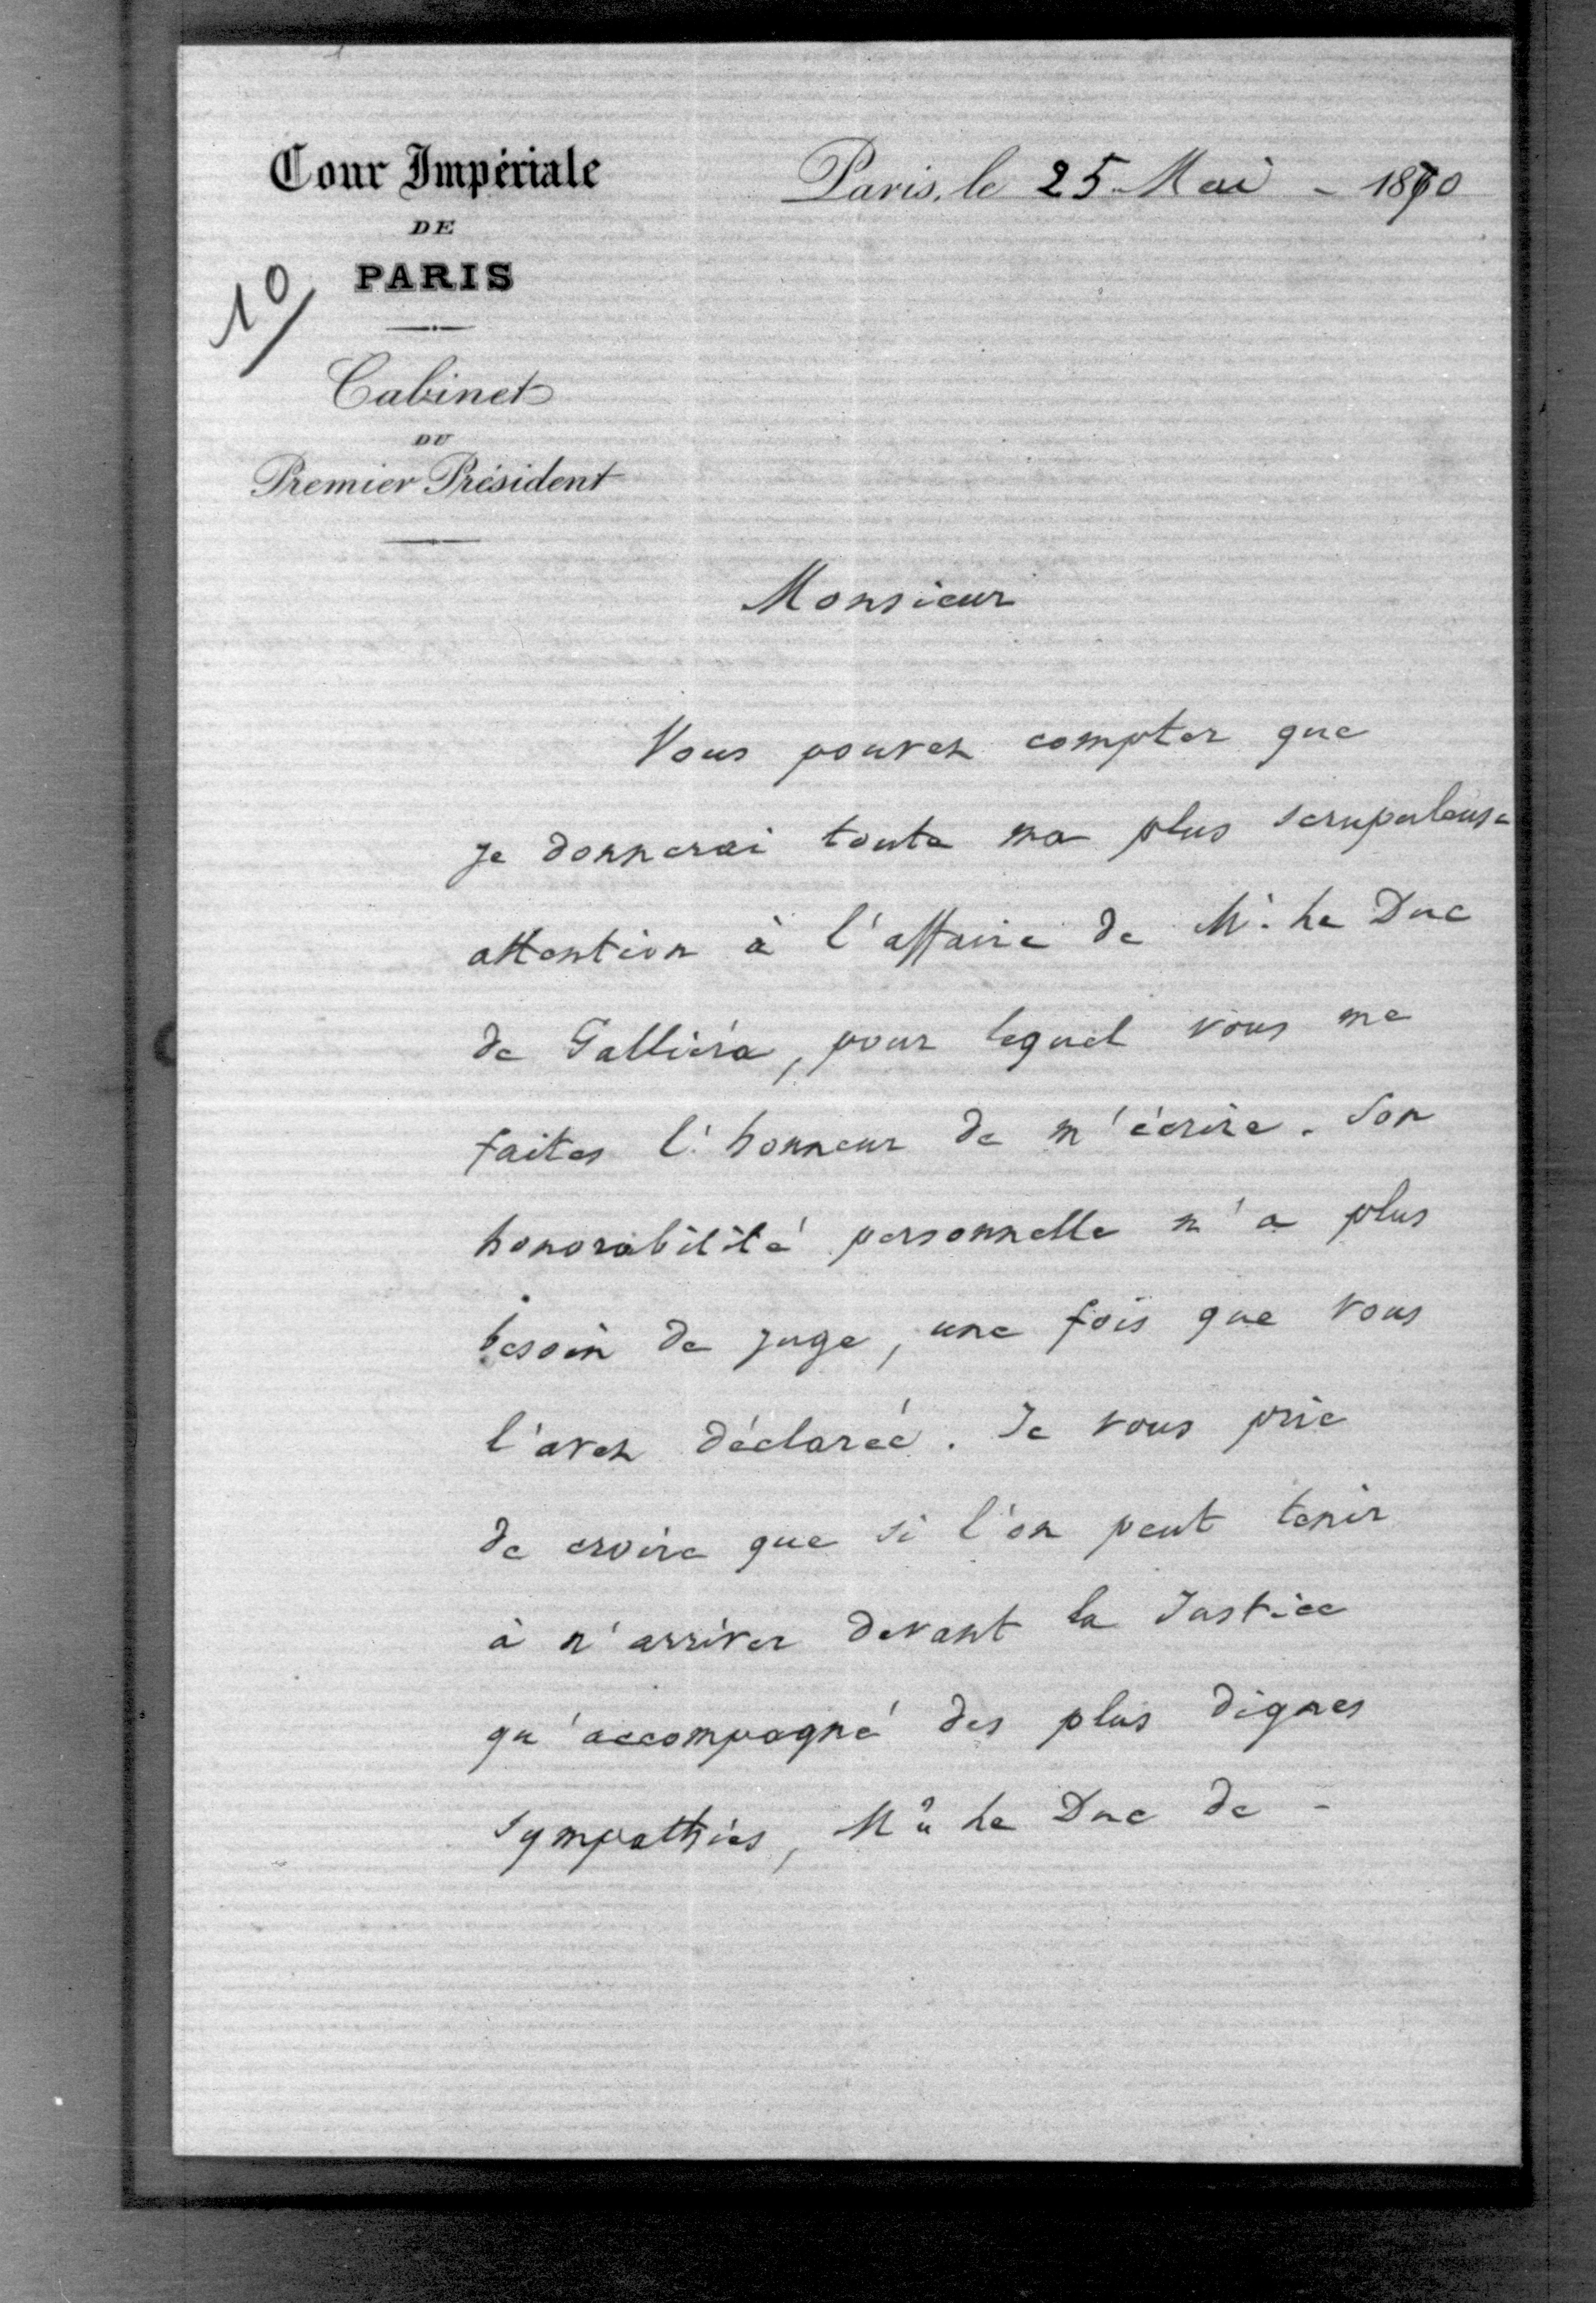 Cour Impériale
DE
PARIS
10/
Cabinet
DU
Premier Président
Paris, le 25 Mai - 1870
Monsieur
Vous pouvez compter que
je donnerai toute ma plus scrupuleuse
attention à l'affaire de Mr. Le Duc
de Galliéra, pour lequel vous me
faites l'honneur de m'écrire. Son
honorabilité personnelle n'a plus
besoin de juge, une fois que vous
l'avez déclarée. Je vous prie
de croire que si l'on peut tenir
à n'arriver devant la Justice
qu'accompagné des plus dignes
sympathies, Mr. Le Duc de -